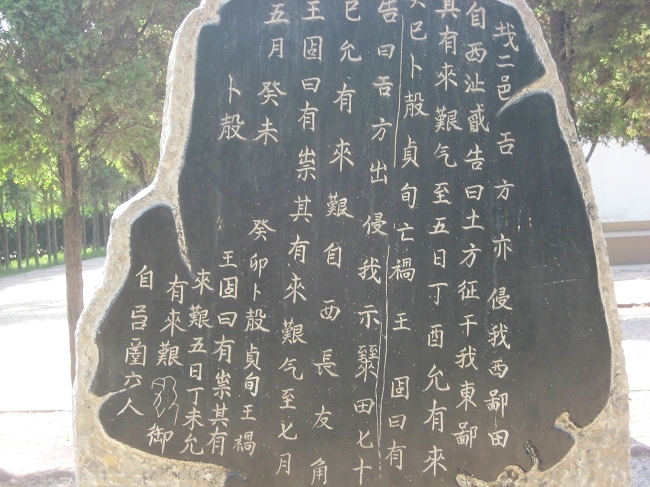 巳卜殻貞旬亡禍王固曰有
其有來艱气至五日丁酉允有來
自西沚告曰土方征于我東鄙
二邑吾方亦侵我西鄙田
卜殻
五月癸未
王固曰有祟其有來艱气至七月
己允有來艱自西長友角
告曰吾方出侵我示田七十
癸卯卜殻貞旬王禍
王固曰有祟其有
來艱五日丁未允
有來艱御
自圉六人